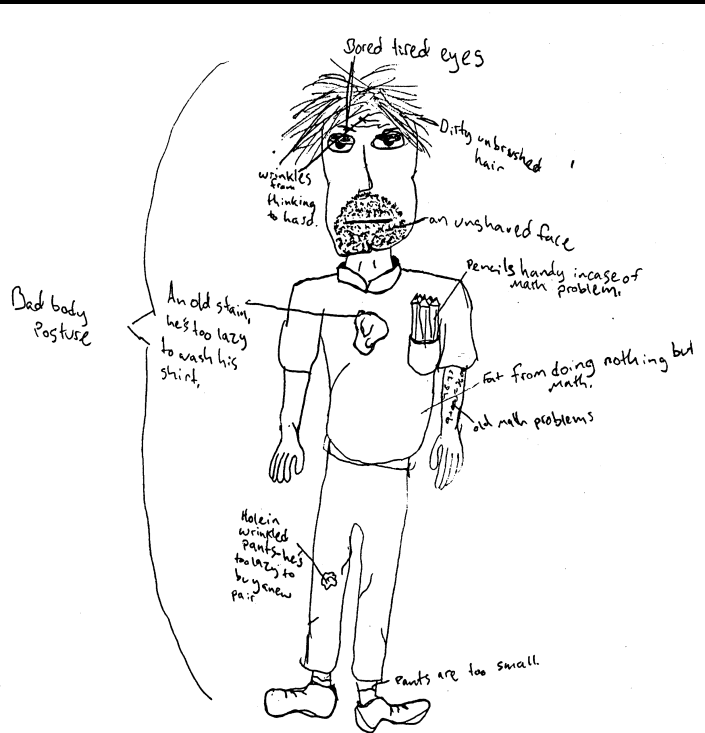 Bored tired eyes
Dirty unbrushed
hair
wrinkles
from
thinking
to hard.
an unshaved face
Pencils handy incase of
math problem.
An old stain,
he's too lazy
to wash his
shirt,
Bad body
Posture
Fat from doing nothing but
Math.
old math problems
Hole in
wrinkled
pants-he's
too lazy to
buy a new
pair
Pants are too small.